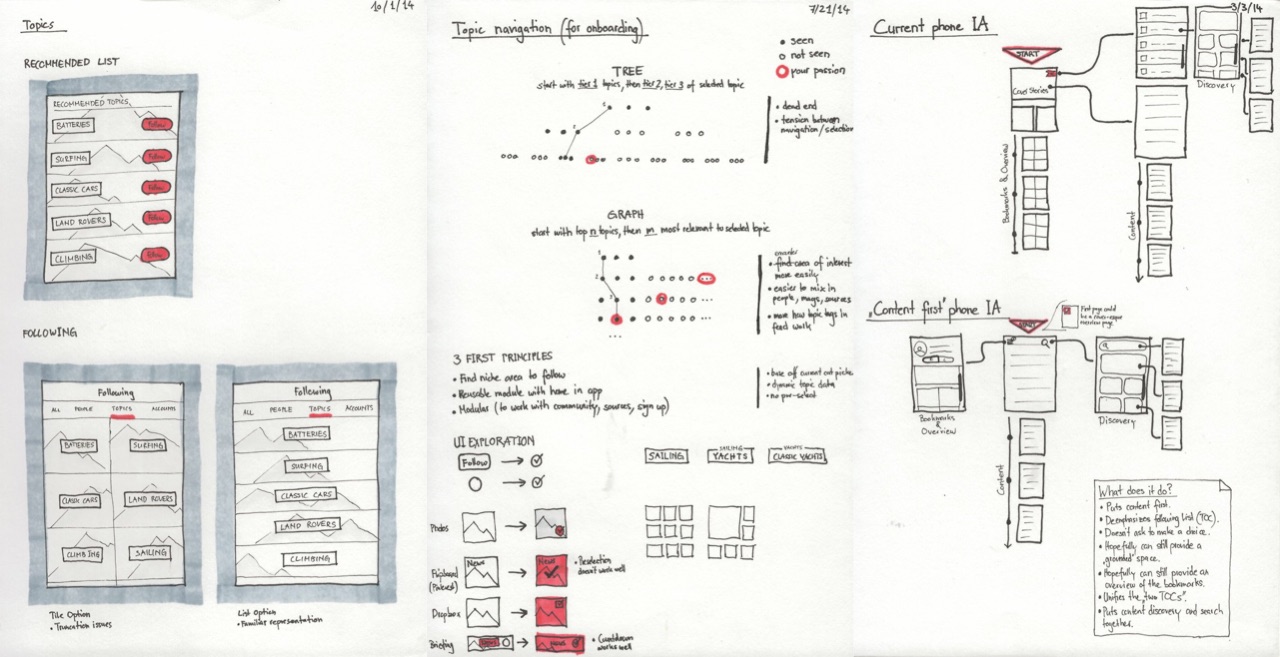 10/1/14
Topics
RECOMMENDED LIST
RECOMMENDED TOPICS
BATTERIES
Follow
SURFING
Follow
CLASSIC CARS
Follow
LAND ROVERS
Follow
CLIMBING
Follow
FOLLOWING
Following
ALL PEOPLE TOPICS ACCOUNTS
BATTERIES SURFING
CLASSIC CARS LAND ROVERS
CLIMBING SAILING
Tile Option
• Truncation issues
Following
ALL PEOPLE TOPICS ACCOUNTS
BATTERIES
SURFING
CLASSIC CARS
LAND ROVERS
CLIMBING
List Option
• Familiar representation
7/21/14
Topic navigation (for onboarding)
• seen
not seen
your passion
TREE
start with tier 1 topics, then tier 2, tier 3 of selected topic
1
2
• dead end
• tension between
navigation/selection
GRAPH
start with top n topics, then m most relevant to selected topic
1
2
3
...
...
...
...
...
smarter
• find area of interest
more easily
• easier to mix in
people, mags, sources
• more how topic tags in
feed work
3 FIRST PRINCIPLES
• Find niche area to follow
• Reusable module with home in app
• Modular (to work with community, sources, sign up)
• base off current
• dynamic topic data
• no pre-select
UI EXPLORATION
Follow
Photos
Flipboard
(Pinterest)
News
News
doesn't work well
Dropbox
Briefing
News
NEWS
works well
SAILING
SAILING
YACHTS
YACHTS
CLASSIC YACHTS
3/3/14
Current phone IA
START
Cover Stories
Bookmarks & Overview
Content
Discovery
"Content first" phone IA
START
First page could
be a cover-esque
overview page.
Bookmarks
&
Overview
Content
Discovery
What does it do?
• Puts content first.
• Deemphasizes following list (TOC).
• Doesn't ask to make a choice.
• Hopefully can still provide a
"grounded" space.
• Hopefully can still provide an
overview of the bookmarks.
• Unifies the "two TOCs".
• Puts content discovery and search
together.